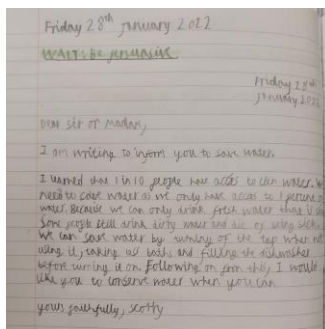 Friday 28th January 2022
WALT: Be persuasive
Friday 28th
January 2022
Dear Sir or Madam,
I am writing to inform you to save water.
I learned that 1 in 10 people have to clen water. We
need to water as we only have to 1 percent of
water. Because we can only drink fresh water that is
Some people still drink dirty water and die of being sick.
We can save water by turning of the tap when not
using it, taking baths and filling the dishwasher
before turning it on. Following on from this, I would
like you to conserve water when you can
yours faithfully, scotty